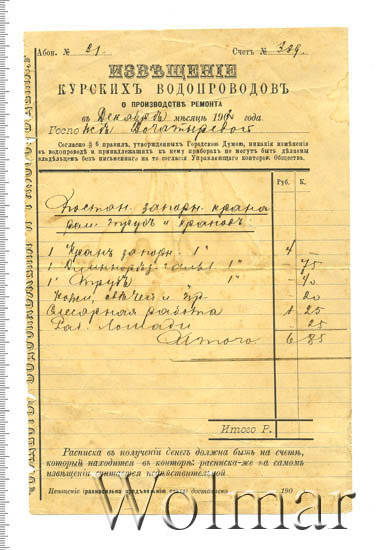 Абон. № 91. Счетъ № 389.
ИЗВѢЩЕНІЕ
КУРСКИХЪ ВОДОПРОВОДОВЪ
О ПРОИЗВОДСТВѢ РЕМОНТА
въ Декабрѣ мѣсяцѣ 190 года.
Госпо жѣ Богатыревой
Согласно § 6 правилъ, утвержденныхъ Городскою Думою, никакія измѣненія
въ водопроводѣ и принадлежащихъ къ нему приборахъ не могутъ быть дѣлаемы
владѣльцемъ безъ письменнаго на то согласія Управляющаго конторою Общества.
Руб. К.
Постан. запорн. крана
рем. трубъ и крановъ:
1 Кранъ запорн. 1" 4
1 1" - 75
1' Трубъ 1" - 40
Кожи, и пр - 20
Слесарная работа 1 25
Раб. лошади - 25
Итого 6 85
Итого Р.
Расписка въ полученіи денегъ должна быть на счетѣ,
который находится въ конторѣ: расписка-же на самомъ
извѣщеніи считается недѣйствительной.
доставлено 190
Wolmar